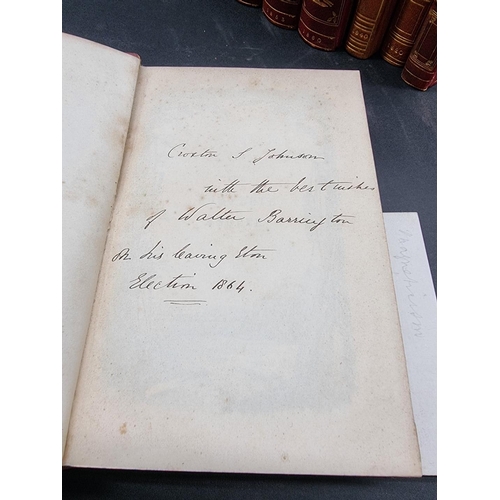 Croxton S Johnson
with the best wishes
of Walter Barrington
on his leaving Eton
Election 1864.